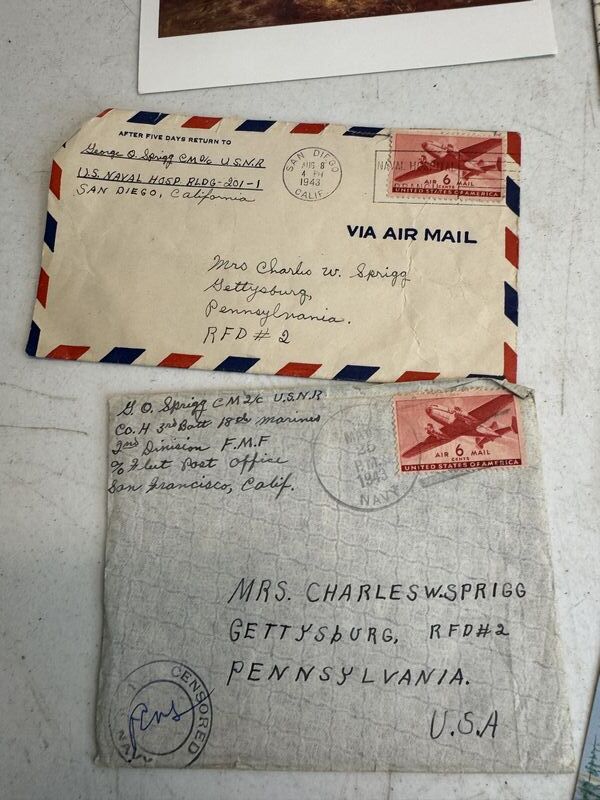 AFTER FIVE DAYS RETURN TO
George O. Sprigg CM2/c U.S.N.R
U.S. NAVAL HOSP BLDG-201-1
SAN DIEGO, California
SAN DIEGO
AUG 6
4 PM
1943
CALIF.
NAVAL HOSPITAL
BRANCH
AIR 6 MAIL
CENTS
UNITED STATES OF AMERICA
VIA AIR MAIL
Mrs Charles W. Sprigg
Gettysburg,
Pennsylvania.
RFD # 2
G. O. Sprigg CM 2/c U.S.N.R
Co. H 3rd Batt 18th marines
2nd Division F.M.F
c/o Fleet Post Office
San Francisco, Calif.
1943
NAVY
AIR 6 MAIL
CENTS
UNITED STATES OF AMERICA
MRS. CHARLES W. SPRIGG
GETTYSbURG, RFD#2
PENNSYLVANIA.
U.S.A
CENSORED